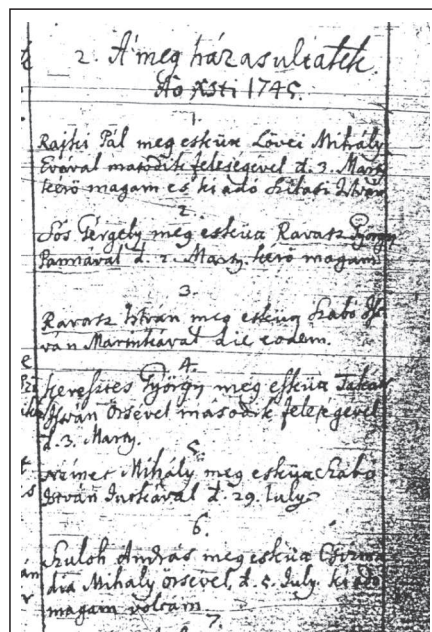 2. A' meg házasultatek.
Ao Xsti 1745.
1.
Rajki Pál meg esküx Lövei Mihály
Evával masodik feleségével d. 3. Marty
kérő magam es ki adó Szitasi István
2.
Sós Gergely meg esküx Ravasz György
Pannával d. 2. Marty. kérő magam
3.
Ravasz István meg esküx Szabó Ist-
ván Marinkával die eodem.
4.
Keresztes György meg esküx Takats
István Örsével második feleségével
d. 3. Marty.
5.
Német Mihály meg esküx Szabó
István Iutkával d. 29. Iuly
6.
András meg esküx Csizma
dia Mihaly orsevel d. 5. Iuly. ki adó
magam voltam
7.